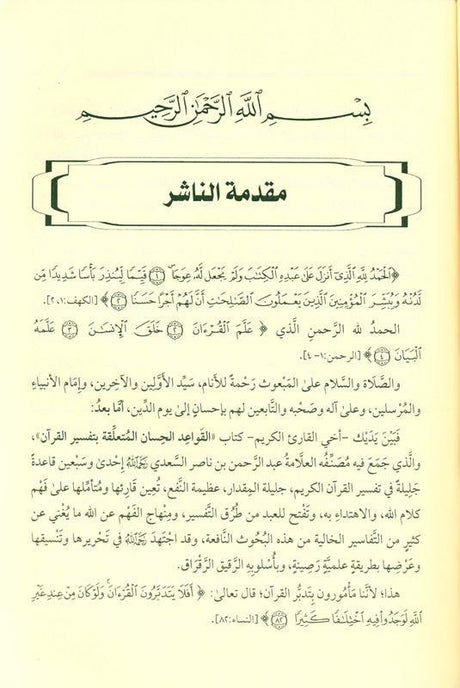 بِسْمِ اللَّهِ الرَّحْمَٰنِ الرَّحِيمِ
مقدمة الناشر
﴿الْحَمْدُ لِلَّهِ الَّذِي أَنزَلَ عَلَىٰ عَبْدِهِ الْكِتَابَ وَلَمْ يَجْعَل لَّهُ عِوَجًا ۜ ۝١ قَيِّمًا لِّيُنذِرَ بَأْسًا شَدِيدًا مِّن
لَّدُنْهُ وَيُبَشِّرَ الْمُؤْمِنِينَ الَّذِينَ يَعْمَلُونَ الصَّالِحَاتِ أَنَّ لَهُمْ أَجْرًا حَسَنًا ۝٢﴾ [الكهف:١، ٢].
الحمدُ لله الرَّحمنِ الَّذي ﴿عَلَّمَ الْقُرْءَانَ ۝٢ خَلَقَ الْإِنسَٰنَ ۝٣ عَلَّمَهُ
الْبَيَانَ ۝٤﴾ [الرحمن:١- ٤].
والصَّلَاة والسَّلام علىٰ المَبْعوث رَحْمةً للأنام، سَيِّد الأوَّلين والآخِرين، وإمَام الأنبياءِ
والمُرْسلين، وعلىٰ آله وصَحْبه والتَّابعين لهم بإحسانٍ إلىٰ يوم الدِّين، أمَّا بعدُ:
فَبَيْنَ يَدَيْكَ -أخي القارئ الكريم- كتاب «القَواعِد الحِسان المُتعلِّقة بتفسير القرآن»،
والَّذي جَمَعَ فيه مُصَنِّفُه العلَّامةُ عبد الرَّحمن بن ناصر السعدي رَحِمَهُ ٱللَّهُ إحْدىٰ وسَبْعين قاعدةً
جَليلةً في تفسير القرآن الكريم، جليلة المِقدار، عظيمة النَّفع، تُعِين قَارِئها ومُتأمِّلها علىٰ فَهْم
كلام الله، والاهتداءِ به، وتَفْتح للعبد من طُرُق التَّفسير، ومِنهاج الفَهْم عن الله ما يُغْني عن
كثيرٍ من التَّفاسير الخالية من هذه البُحُوث النَّافعة، وقد اجْتَهَدَ رَحِمَهُ ٱللَّهُ في تَحْريرها وتَنْسيقها
وعَرْضِها بطريقةٍ علميَّةٍ رَصِينةٍ، وبأُسْلوبِهِ الرَّقيق الرَّقْرَاق.
هذا؛ لأنَّنا مأمُورون بِتدبُّر القرآن؛ قال تعالىٰ: ﴿أَفَلَا يَتَدَبَّرُونَ الْقُرْءَانَ ۚ وَلَوْ كَانَ مِنْ عِندِ غَيْرِ
اللَّهِ لَوَجَدُوا فِيهِ اخْتِلَٰفًا كَثِيرًا ۝٨٢﴾ [النساء:٨٢].